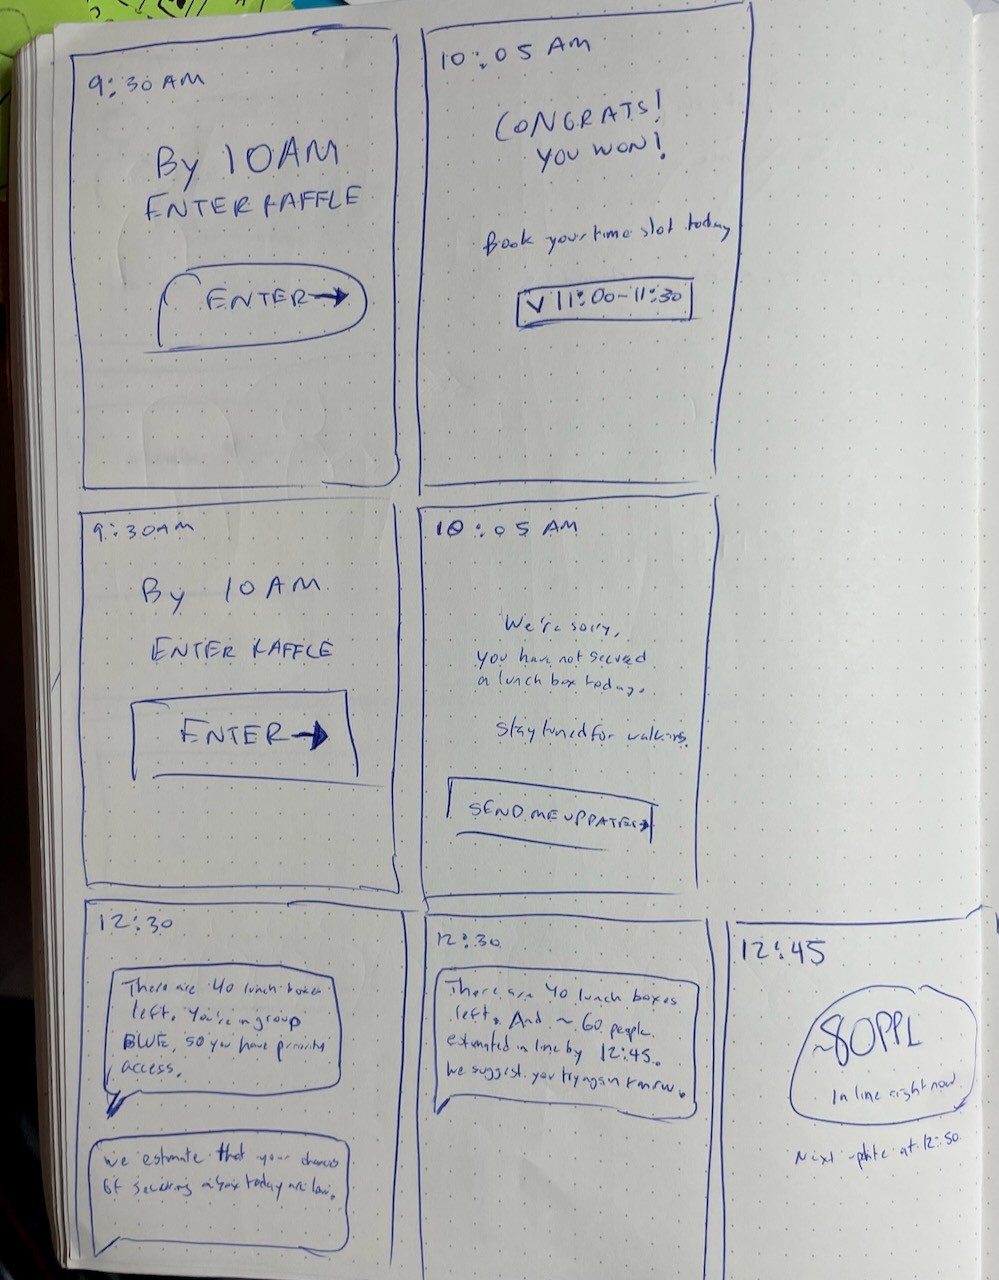 9:30 AM
By 10AM
ENTER RAFFLE
ENTER→
10:05 AM
CONGRATS!
YOU WON!
Book your time slot today
V 11:00-11:30
9:30AM
By 10AM
ENTER RAFFLE
ENTER→
10:05 AM
We're sorry,
you have not secured
a lunch box today.
Stay tuned for walk-ins.
SEND ME UPDATES→
12:30
There are 40 lunch boxes
left. You're in group
BLUE, so you have priority
access.
We estimate that your chances
of securing a box today are low.
12:30
There are 40 lunch boxes
left. And ~60 people
estimated in line by 12:45.
We suggest you try again tmrw.
12:45
~80PPL
In line right now
Next update at 12:50.